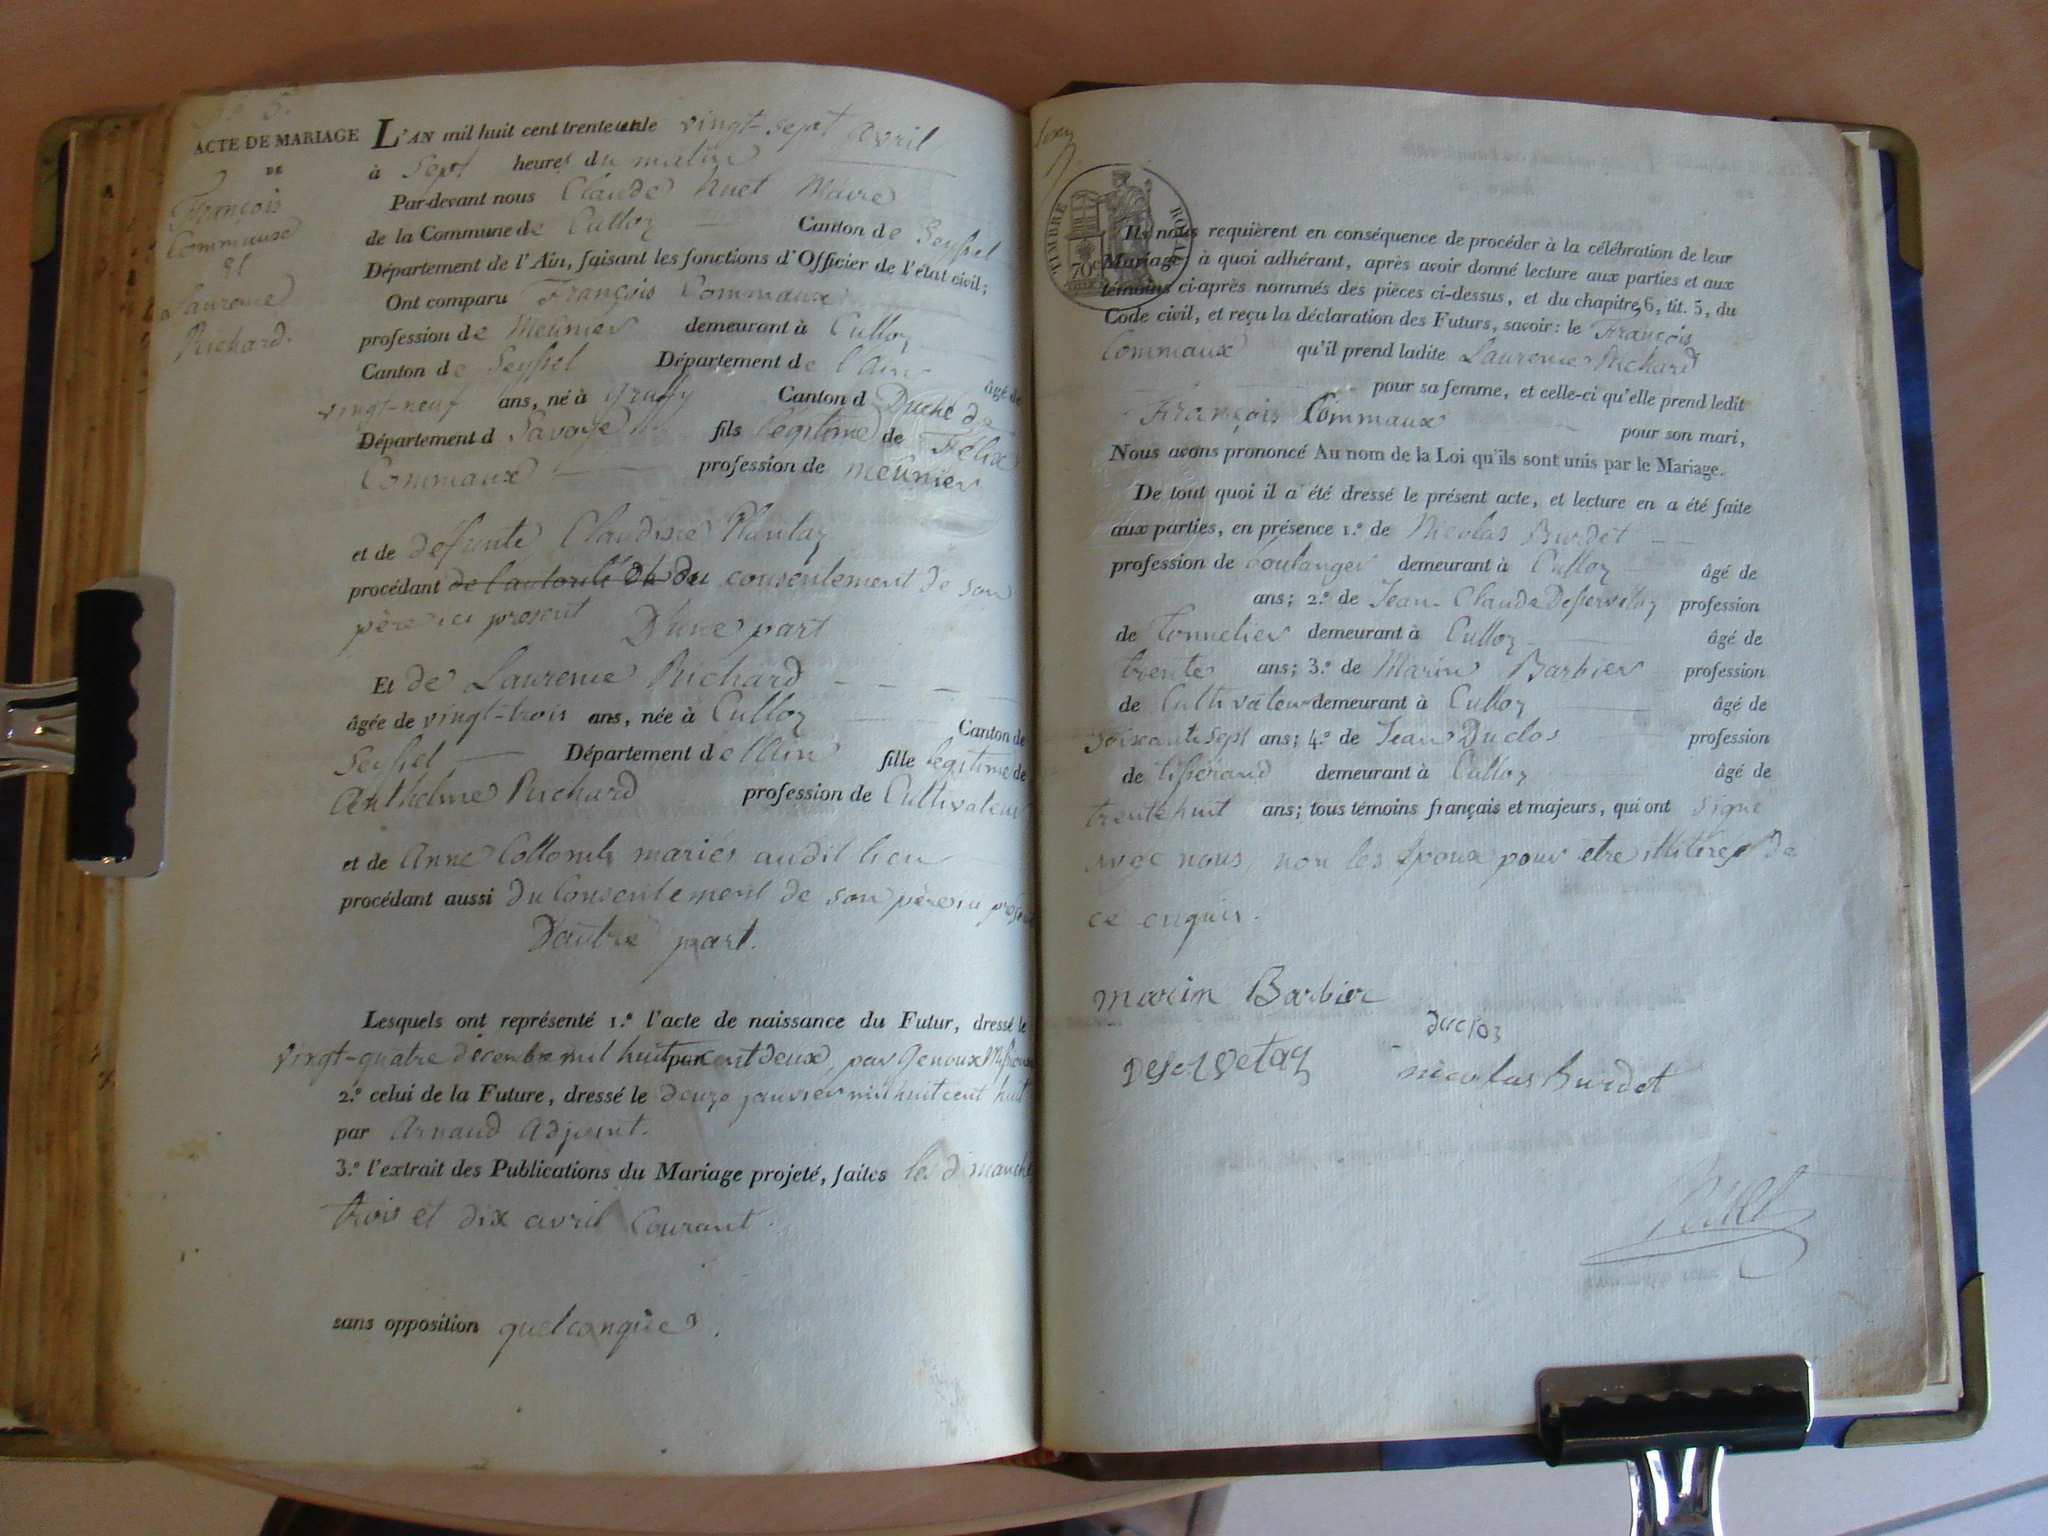 N.° 6.
ACTE DE MARIAGE
DE
François
Commaux
et
Laurence
Richard.
L'AN mil huit cent trente un le vingt-sept avril
à Sept heures du matin
Par-devant nous Claude huet Maire
de la Commune de Culloz Canton de Seyssel
Département de l'Ain, faisant les fonctions d'Officier de l'état civil;
Ont comparu François Commaux
profession de Meunier demeurant à Culloz
Canton de Seyssel Département de l'Ain âgé de
vingt-neuf ans, né à Gruffy Canton d Duché de
Département d Savoye fils légitime de Félix
Commaux profession de meunier
et de défunte Claudine
procédant de l'autorité de du consentement de son
père ici present D'une part
Et de Laurence Richard
âgée de vingt-trois ans, née à Culloz Canton de
Seyssel Département de l'Ain fille légitime de
Anthelme Richard profession de Cultivateur
et de Anne Collomb mariés audit lieu
procédant aussi du Consentement de son père ici présent
D'autre part.
Lesquels ont représenté 1.° l'acte de naissance du Futur, dressé le
vingt-quatre décembre mil huit par cent deux, par Genoux
2.° celui de la Future, dressé le douze janvier mil huit cent huit
par Arnaud Adjoint.
3.° l'extrait des Publications du Mariage projeté, faites les dimanche
trois et dix avril Courant.
sans opposition quelconque.
TIMBRE ROYAL
70 c
Ils nous requièrent en conséquence de procéder à la célébration de leur
Mariage; à quoi adhérant, après avoir donné lecture aux parties et aux
témoins ci-après nommés des pièces ci-dessus, et du chapitre 6, tit. 5, du
Code civil, et reçu la déclaration des Futurs, savoir: le François
Commaux qu'il prend ladite Laurence Richard
pour sa femme, et celle-ci qu'elle prend ledit
François Commaux pour son mari,
Nous avons prononcé Au nom de la Loi qu'ils sont unis par le Mariage.
De tout quoi il a été dressé le présent acte, et lecture en a été faite
aux parties, en présence 1.° de Nicolas Burdet
profession de boulanger demeurant à Culloz âgé de
ans; 2.° de Jean-Claude Deservetaz profession
de tonnelier demeurant à Culloz âgé de
trente ans; 3.° de Marin Barbier profession
de Cultivateur demeurant à Culloz âgé de
soixante sept ans; 4.° de Jean Duclos profession
de tisserand demeurant à Culloz âgé de
trente huit ans; tous témoins français et majeurs, qui ont signé
avec nous, non les Epoux pour être illitérés de
ce enquis.
marin Barbier
duclos
Deservetaz
nicolas Burdet
huet